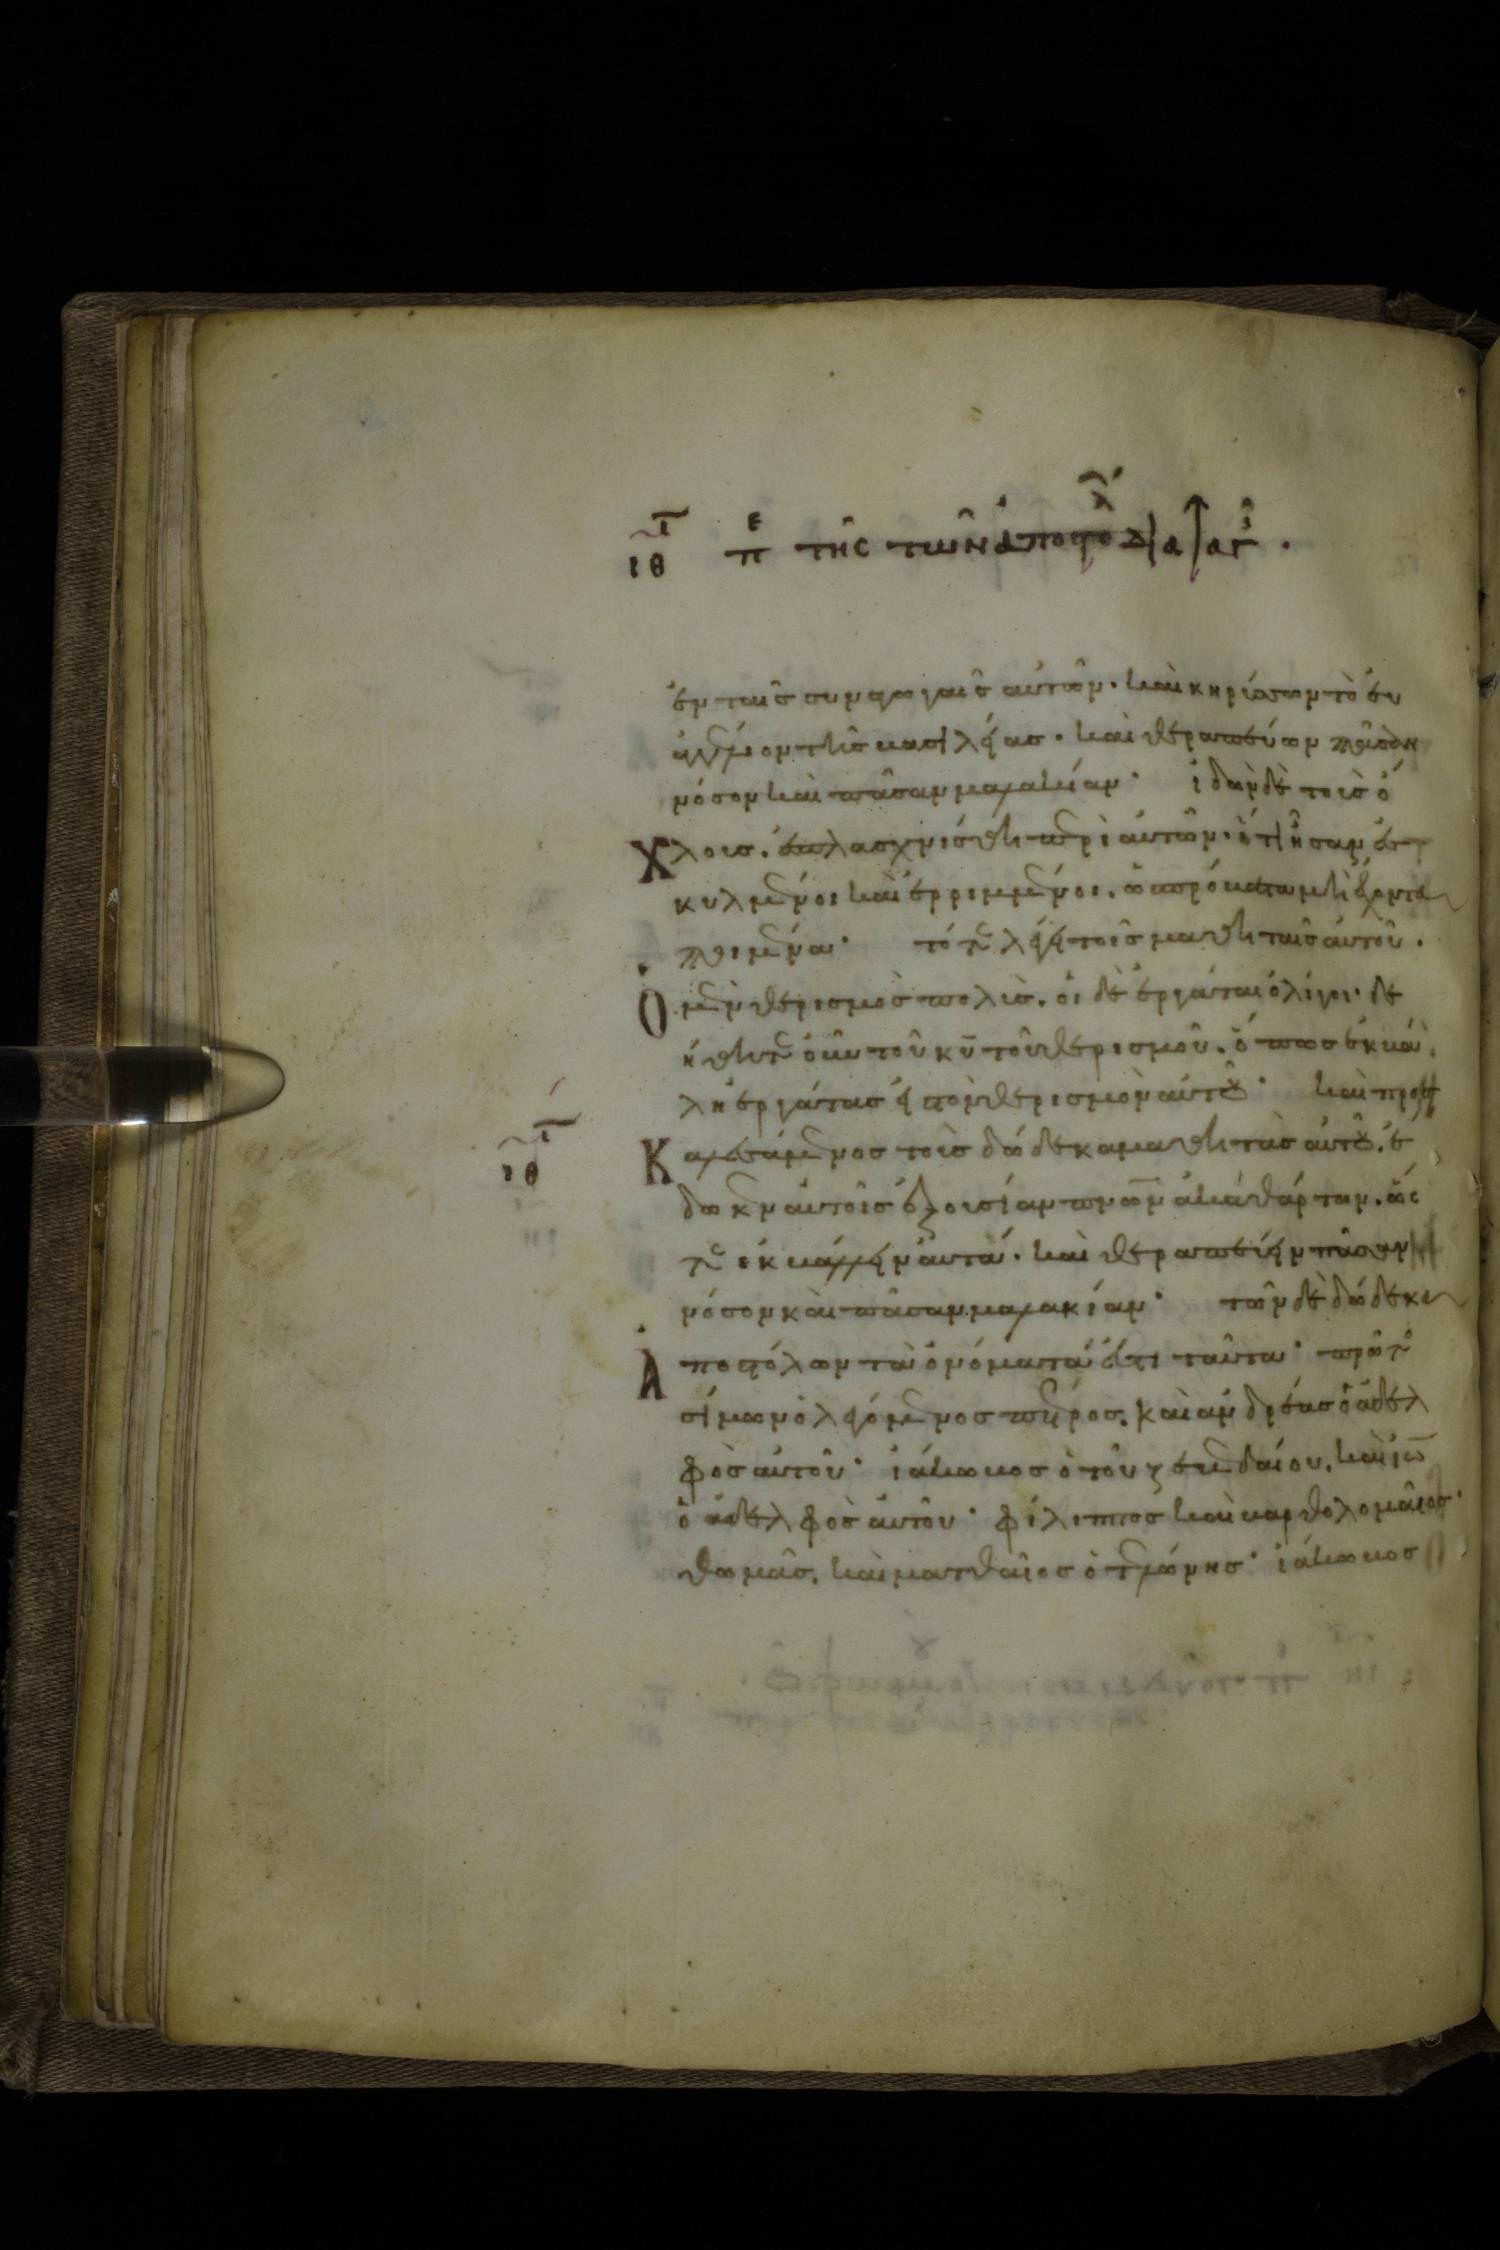 ιθ τ πε τῆς τῶν ἀποστόλ διαταγῆς.
ἐν ταῖς συναγωγαῖς αὐτῶν. καὶ κηρύσσων τὸ ἐυ
αγγέλιον τῆς βασιλείας. καὶ θεραπεύων πᾶσαν
νόσον καὶ πᾶσαν μαλακίαν. ἰδὼν δὲ τοὺς ὄ
χλους. ἐσπλαγχνίσθη περὶ αὐτῶν. ὅτι ἦσαν ἐσ
κυλμένοι καὶ ἐρριμμένοι. ὡς πρόβατα μὴ ἔχοντα
ποιμένα. τότε λέγει τοῖς μαθηταῖς αὐτοῦ.
ὁ μὲν θερισμὸς πολὺς. οἱ δὲ ἐργάται ὀλίγοι. δε
ήθητε οὖν τοῦ κυ τοῦ θερισμοῦ. ὅπως ἐκβά
λη ἐργάτας εἰς τὸν θερισμὸν αὐτοῦ. καὶ προσ
ιθ τ
καλεσάμενος τοὺς δώδεκα μαθητὰς αὐτοῦ. ἔ
δωκεν αὐτοῖς ἐξουσίαν πνων ἀκαθάρτων. ὥς
τε ἐκβάλλειν αὐτά. καὶ θεραπεύειν πᾶσαν
νόσον καὶ πᾶσαν μαλακίαν. τῶν δὲ δώδεκα
ἀποστόλων τὰ ὀνόματά ἐστι ταῦτα. πρῶτος
σίμων ὁ λεγόμενος πέτρος. καὶ ἀνδρέας ὁ ἀδελ
φὸς αὐτοῦ. ἰάκωβος ὁ τοῦ ζεβεδαίου. καὶ ἰω
ὁ ἀδελφὸς αὐτοῦ. φίλιππος καὶ βαρθολομαῖος.
θωμᾶς. καὶ ματθαῖος ὁ τελώνης. ἰάκωβος